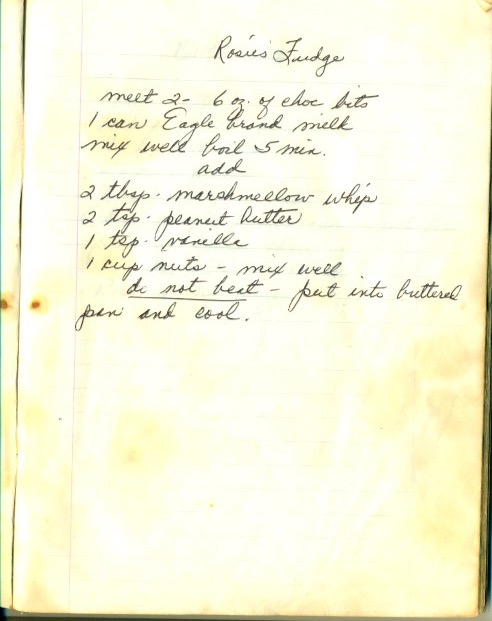 Rosie's Fudge
melt 2 - 6 oz. of choc bits
1 can Eagle brand milk
mix well boil 5 min.
add
2 tbsp. marshmellow whip
2 tsp. peanut butter
1 tsp. vanilla
1 cup nuts - mix well
do not beat - put into buttered
pan and cool.